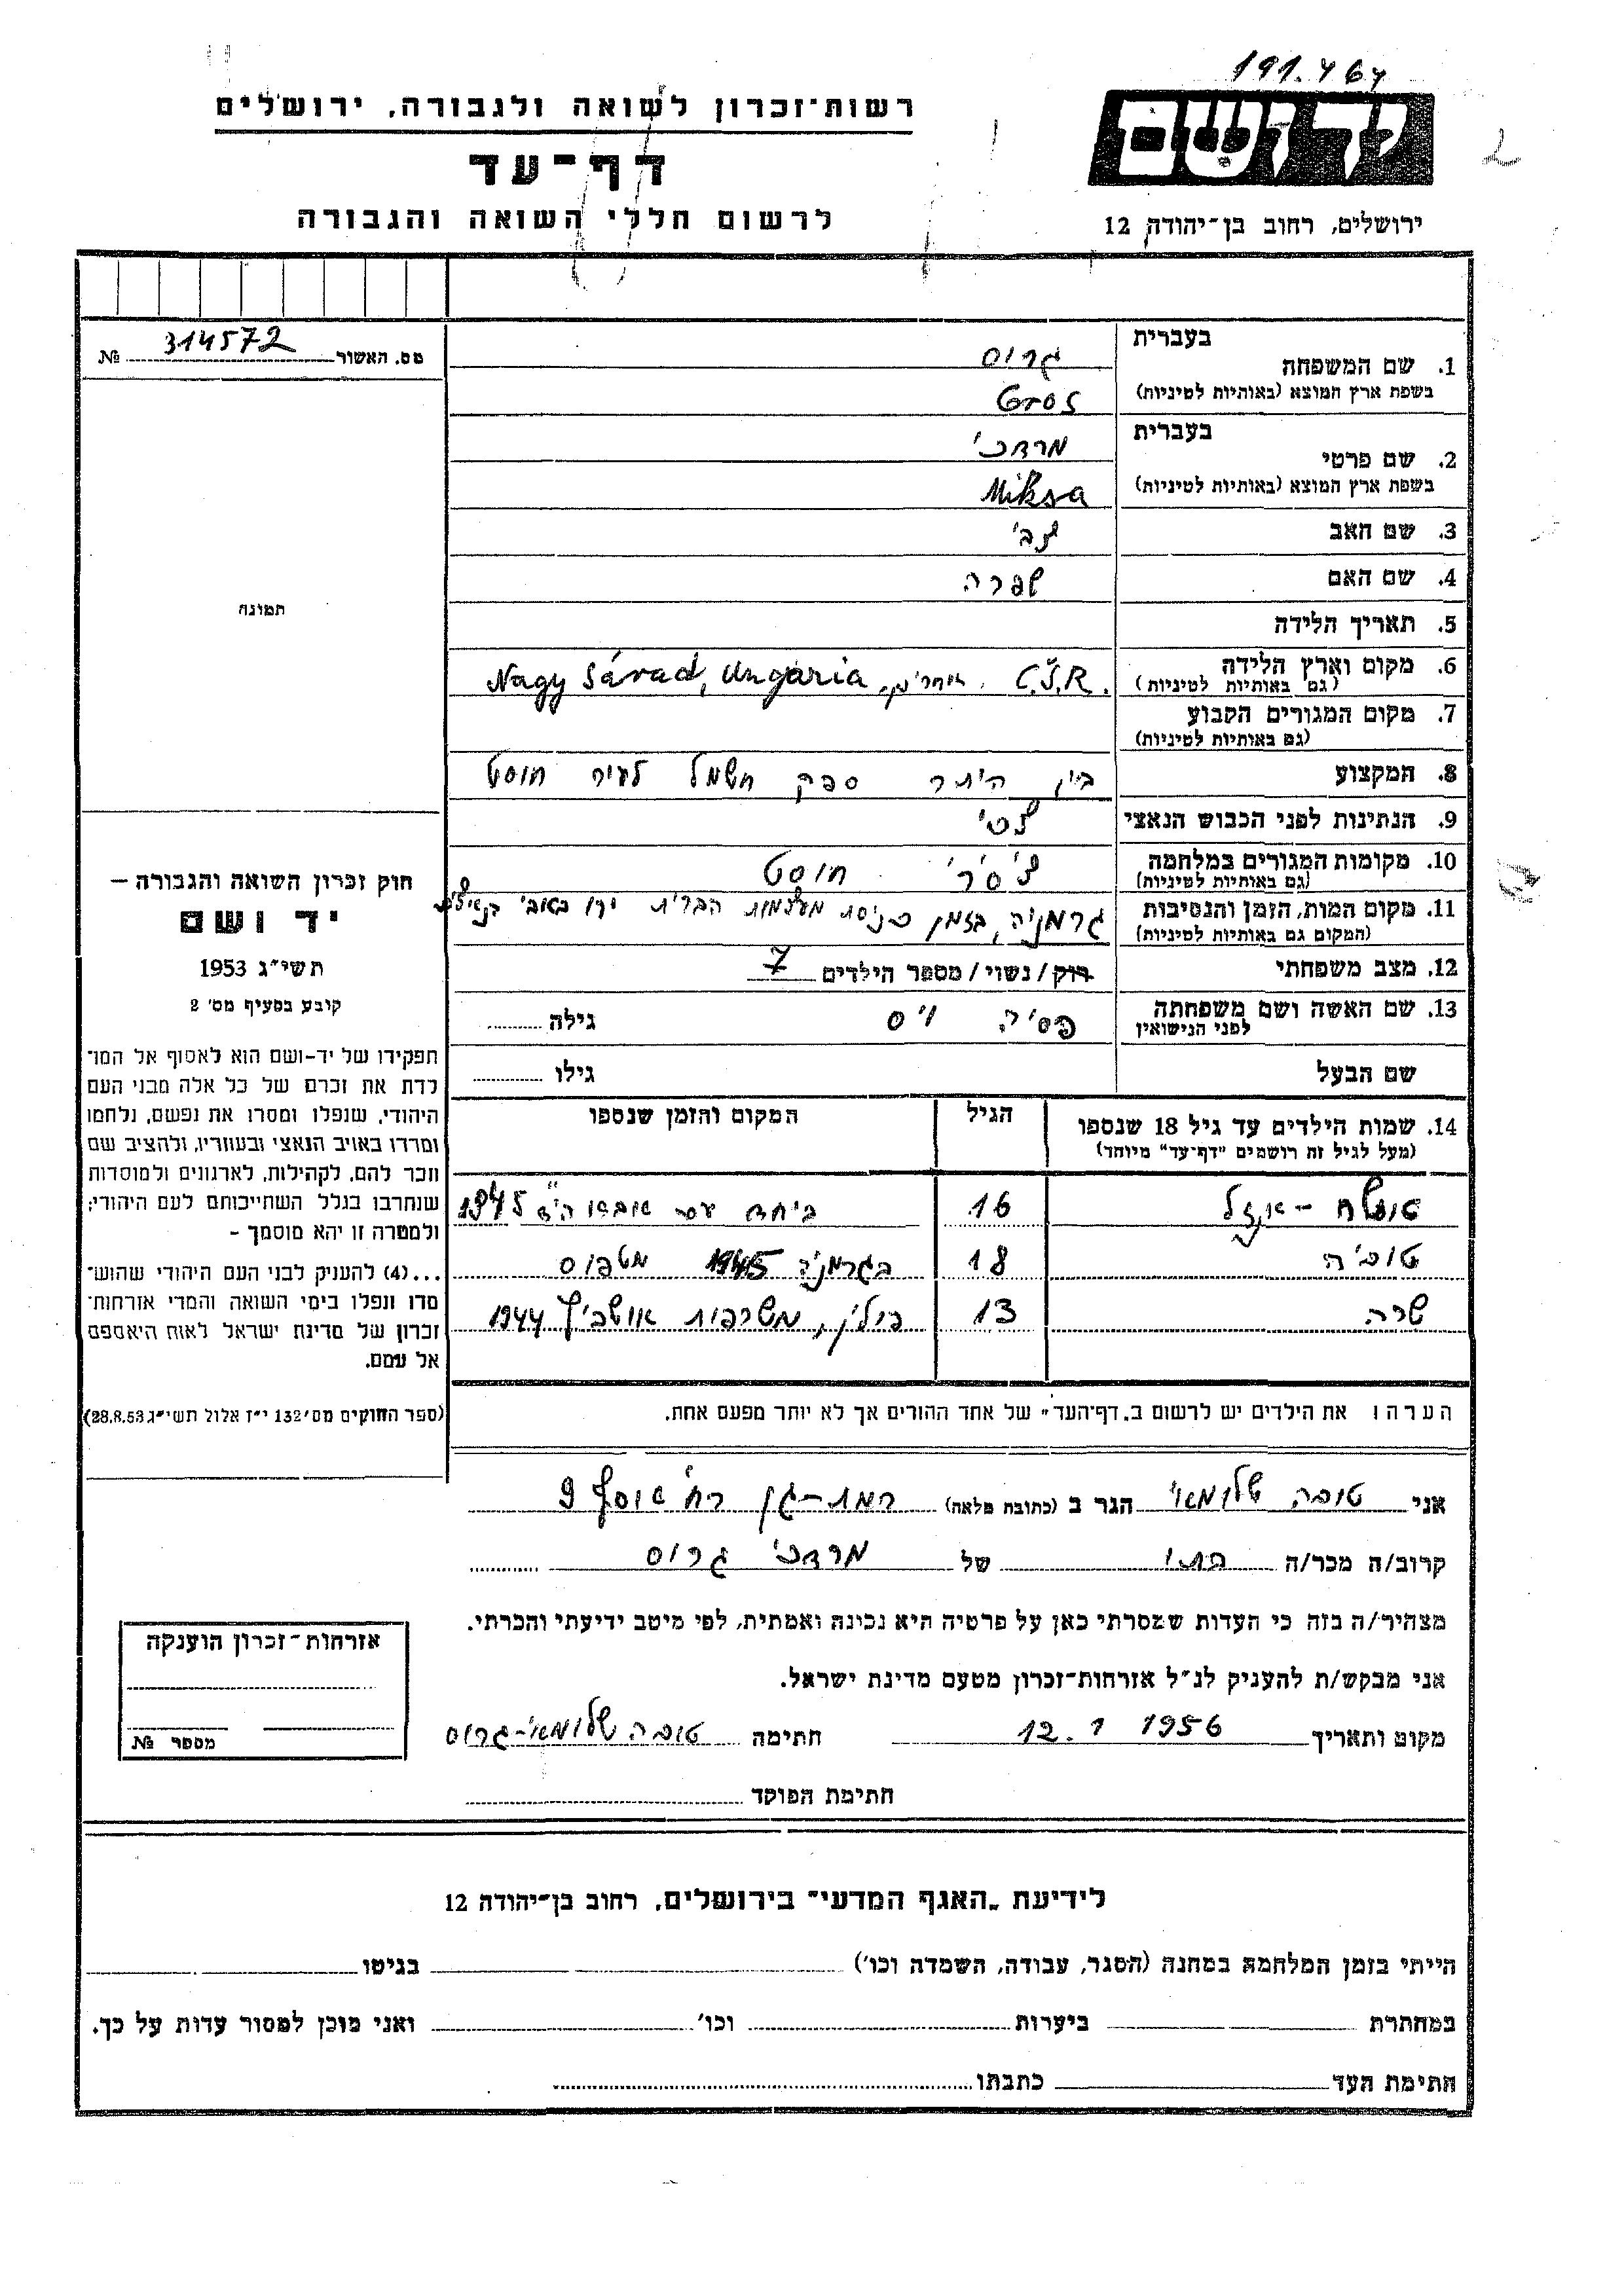 191.464
רשות־זכרון לשואה ולגבורה, ירושלים
יד ושם
דף־עד
לרשום חללי השואה והגבורה
ירושלים, רחוב בן־יהודה 12
מס. האשור 314572 №
תמונה
חוק זכרון השואה והגבורה —
יד ושם
תשי״ג 1953
קובע בסעיף מס׳ 2
תפקידו של יד-ושם הוא לאסוף אל המו־
לדת את זכרם של כל אלה מבני העם
היהודי, שנפלו ומסרו את נפשם, נלחמו
ומרדו באויב הנאצי ובעוזריו, ולהציב שם
וזכר להם, לקהילות, לארגונים ולמוסדות
שנחרבו בגלל השתייכותם לעם היהודי;
ולמטרה זו יהא מוסמך —
...(4) להעניק לבני העם היהודי שהוש־
מדו ונפלו בימי השואה והמרי אזרחות־
זכרון של מדינת ישראל לאות היאספם
אל עמם.
(ספר החוקים מס׳ 132 י״ז אלול תשי״ג 28.8.53)
בעברית
1. שם המשפחה גרוס
בשפת ארץ המוצא (באותיות לטיניות) Gros
בעברית
2. שם פרטי מרדכי
בשפת ארץ המוצא (באותיות לטיניות) Miksa
3. שם האב צבי
4. שם האם שפרה
5. תאריך הלידה
6. מקום וארץ הלידה C.Š.R. Nagy Sárad, Ungaria
(גם באותיות לטיניות)
7. מקום המגורים הקבוע
(גם באותיות לטיניות)
8. המקצוע בין היתר ספק חשמל לעיר חוסט
9. הנתינות לפני הכבוש הנאצי צ׳כי
10. מקומות המגורים במלחמה צ׳ס׳ר׳ חוסט
(גם באותיות לטיניות)
11. מקום המות, הזמן והנסיבות גרמניה, בזמן כניסת מעצמות הברית ירו באובי הנאצים
(המקום גם באותיות לטיניות)
12. מצב משפחתי רוק / נשוי / מספר הילדים 7
13. שם האשה ושם משפחתה פסיה ויס גילה
לפני הנישואין
שם הבעל גילו
14. שמות הילדים עד גיל 18 שנספו הגיל המקום והזמן שנספו
(מעל לגיל זה רושמים ״דף־עד״ מיוחד)
16 ביחד עם אביו הי״ד 1945
טוביה 18 בגרמניה 1945 מטפוס
שרה 13 פולין, משרפות אושביץ 1944
הערה: את הילדים יש לרשום ב„דף־העד״ של אחד ההורים אך לא יותר מפעם אחת.
אני טובה שלומאי הגר ב (כתובת מלאה) רמת-גן רח׳ 9
קרוב/ה מכר/ה בתו של מרדכי גרוס
מצהיר/ה בזה כי העדות שמסרתי כאן על פרטיה היא נכונה ואמתית, לפי מיטב ידיעתי והכרתי.
אני מבקש/ת להעניק לנ״ל אזרחות־זכרון מטעם מדינת ישראל.
מקום ותאריך 12. 1 1956 חתימה טובה שלומאי-גרוס
חתימת הפוקד
אזרחות־זכרון הוענקה
מספר №
לידיעת „האגף המדעי״ בירושלים, רחוב בן־יהודה 12
הייתי בזמן המלחמה במחנה (הסגר, עבודה, השמדה וכו׳) בגיטו
במחתרת ביערות וכו׳ ואני מוכן למסור עדות על כך.
חתימת העד כתבתו